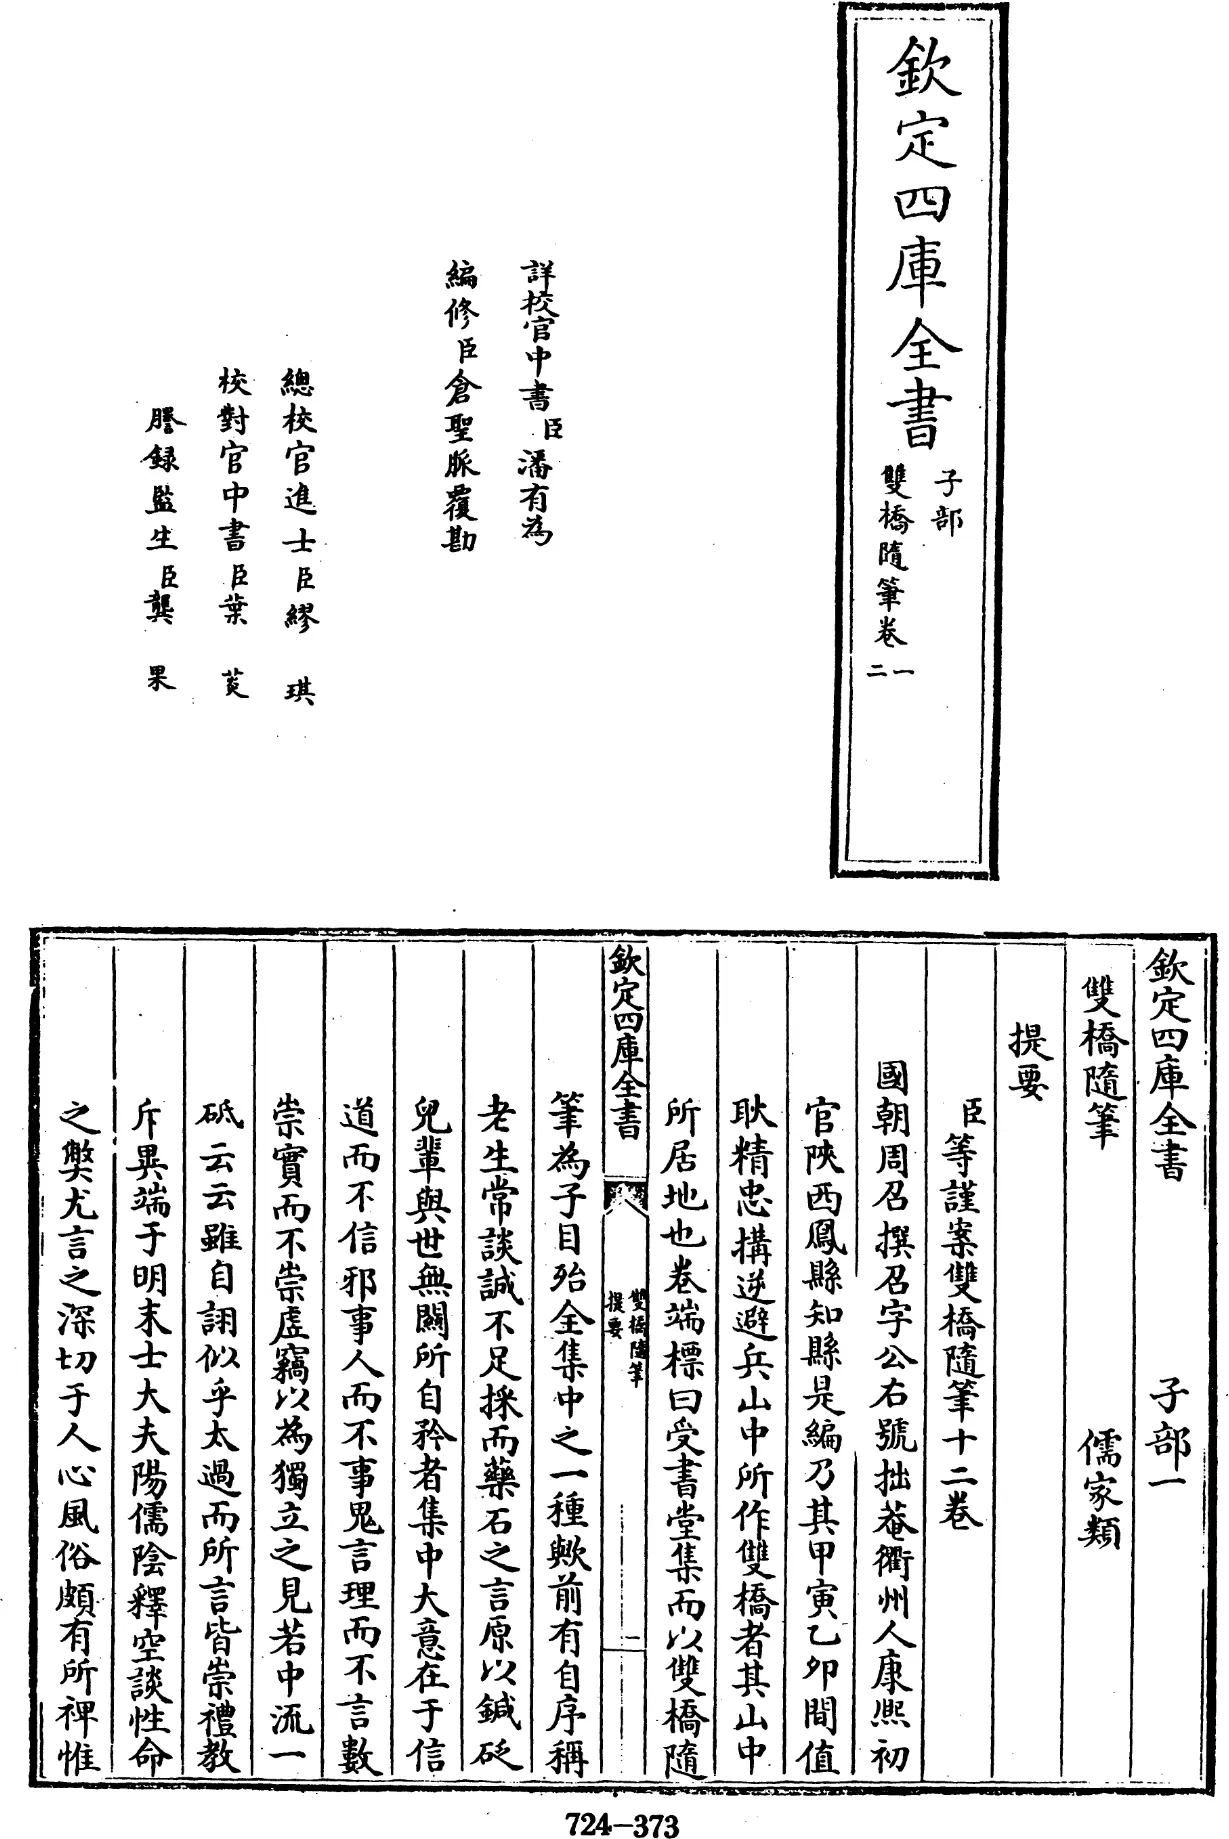 欽定四庫全書
子部
雙橋隨筆卷一
二
詳校官中書臣潘有為
編修臣倉聖脈覆勘
總校官進士臣繆琪
校對官中書臣葉菼
謄録監生臣龔果
欽定四庫全書 子部一
雙橋隨筆 儒家類
提要
臣等謹案雙橋隨筆十二卷
國朝周召撰召字公右號拙菴衢州人康熙初
官陜西鳳縣知縣是編乃其甲寅乙卯間值
耿精忠搆逆避兵山中所作雙橋者其山中
所居地也卷端標曰受書堂集而以雙橋隨
欽定四庫全書 雙橋隨筆 提要 一
筆為子目殆全集中之一種歟前有自序稱
老生常談誠不足採而藥石之言原以鍼砭
兒輩與世無關所自矜者集中大意在于信
道而不信邪事人而不事鬼言理而不言數
崇實而不崇虛竊以為獨立之見若中流一
砥云云雖自詡似乎太過而所言皆崇禮教
斥異端于明末士大夫陽儒陰釋空談性命
之獘尤言之深切于人心風俗頗有所裨惟
724—373